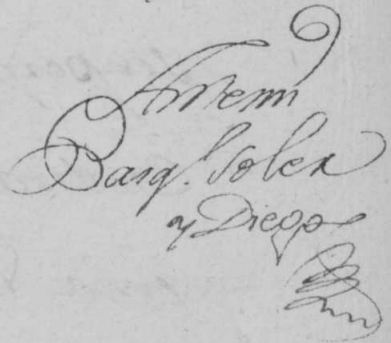 Antemi
Barq.l Soler
y Diego